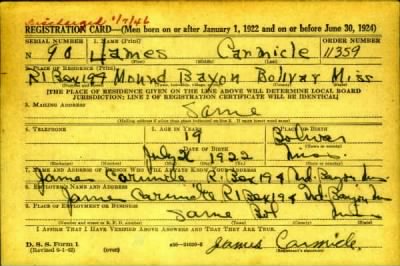 discharged 1/7/46
REGISTRATION CARD—(Men born on or after January 1, 1922 and on or before June 30, 1924)
SERIAL NUMBER 1. NAME (Print) ORDER NUMBER
N 90 James Carmicle 11359
(First) (Middle) (Last)
2. PLACE OF RESIDENCE (Print)
R1 Box 194 Mound Bayou Bolivar Miss
[THE PLACE OF RESIDENCE GIVEN ON THE LINE ABOVE WILL DETERMINE LOCAL BOARD
JURISDICTION; LINE 2 OF REGISTRATION CERTIFICATE WILL BE IDENTICAL]
3. MAILING ADDRESS
Same
4. TELEPHONE 5. AGE IN YEARS 6. PLACE OF BIRTH
19 Bolivar
DATE OF BIRTH
July 1922 Miss
(Exchange) (Number) (Mo.) (Day) (Yr.) (State or country)
7. NAME AND ADDRESS OF PERSON WHO WILL ALWAYS KNOW YOUR ADDRESS
Carmicle R1 Box 194 Md. Bayou
8. EMPLOYER'S NAME AND ADDRESS
Carmicle R1 Box 194 Md. Bayou
9. PLACE OF EMPLOYMENT OR BUSINESS
Same Bol
I AFFIRM THAT I HAVE VERIFIED ABOVE ANSWERS AND THAT THEY ARE TRUE.
D. S. S. Form 1
(over)
James Carmicle